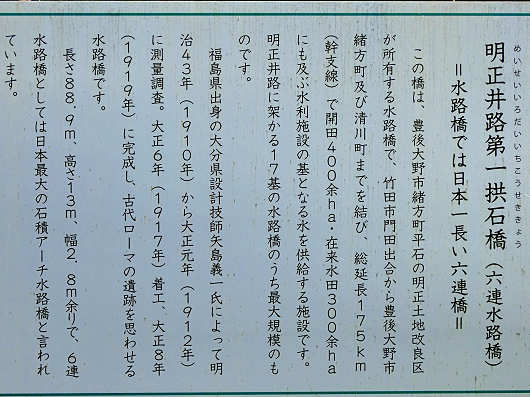 めいせいいろだいいちこうせききょう
明正井路第一拱石橋（六連水路橋）
＝水路橋では日本一長い六連橋＝
この橋は、豊後大野市緒方町平石の明正土地改良区
が所有する水路橋で、竹田市門田出合から豊後大野市
緒方町及び清川町までを結び、総延長１７５ｋｍ
（幹支線）で開田４００余ｈａ・在来水田３００余ｈａ
にも及ぶ水利施設の基となる水を供給する施設です。
明正井路に架かる１７基の水路橋のうち最大規模のも
のです。
福島県出身の大分県設計技師矢島義一氏によって明
治４３年（１９１０年）から大正元年（１９１２年）
に測量調査。大正６年（１９１７年）着工、大正８年
（１９１９年）に完成し、古代ローマの遺跡を思わせる
水路橋です。
長さ８８．９ｍ、高さ１３ｍ、幅２．８ｍ余りで、６連
水路橋としては日本最大の石積アーチ水路橋と言われ
ています。